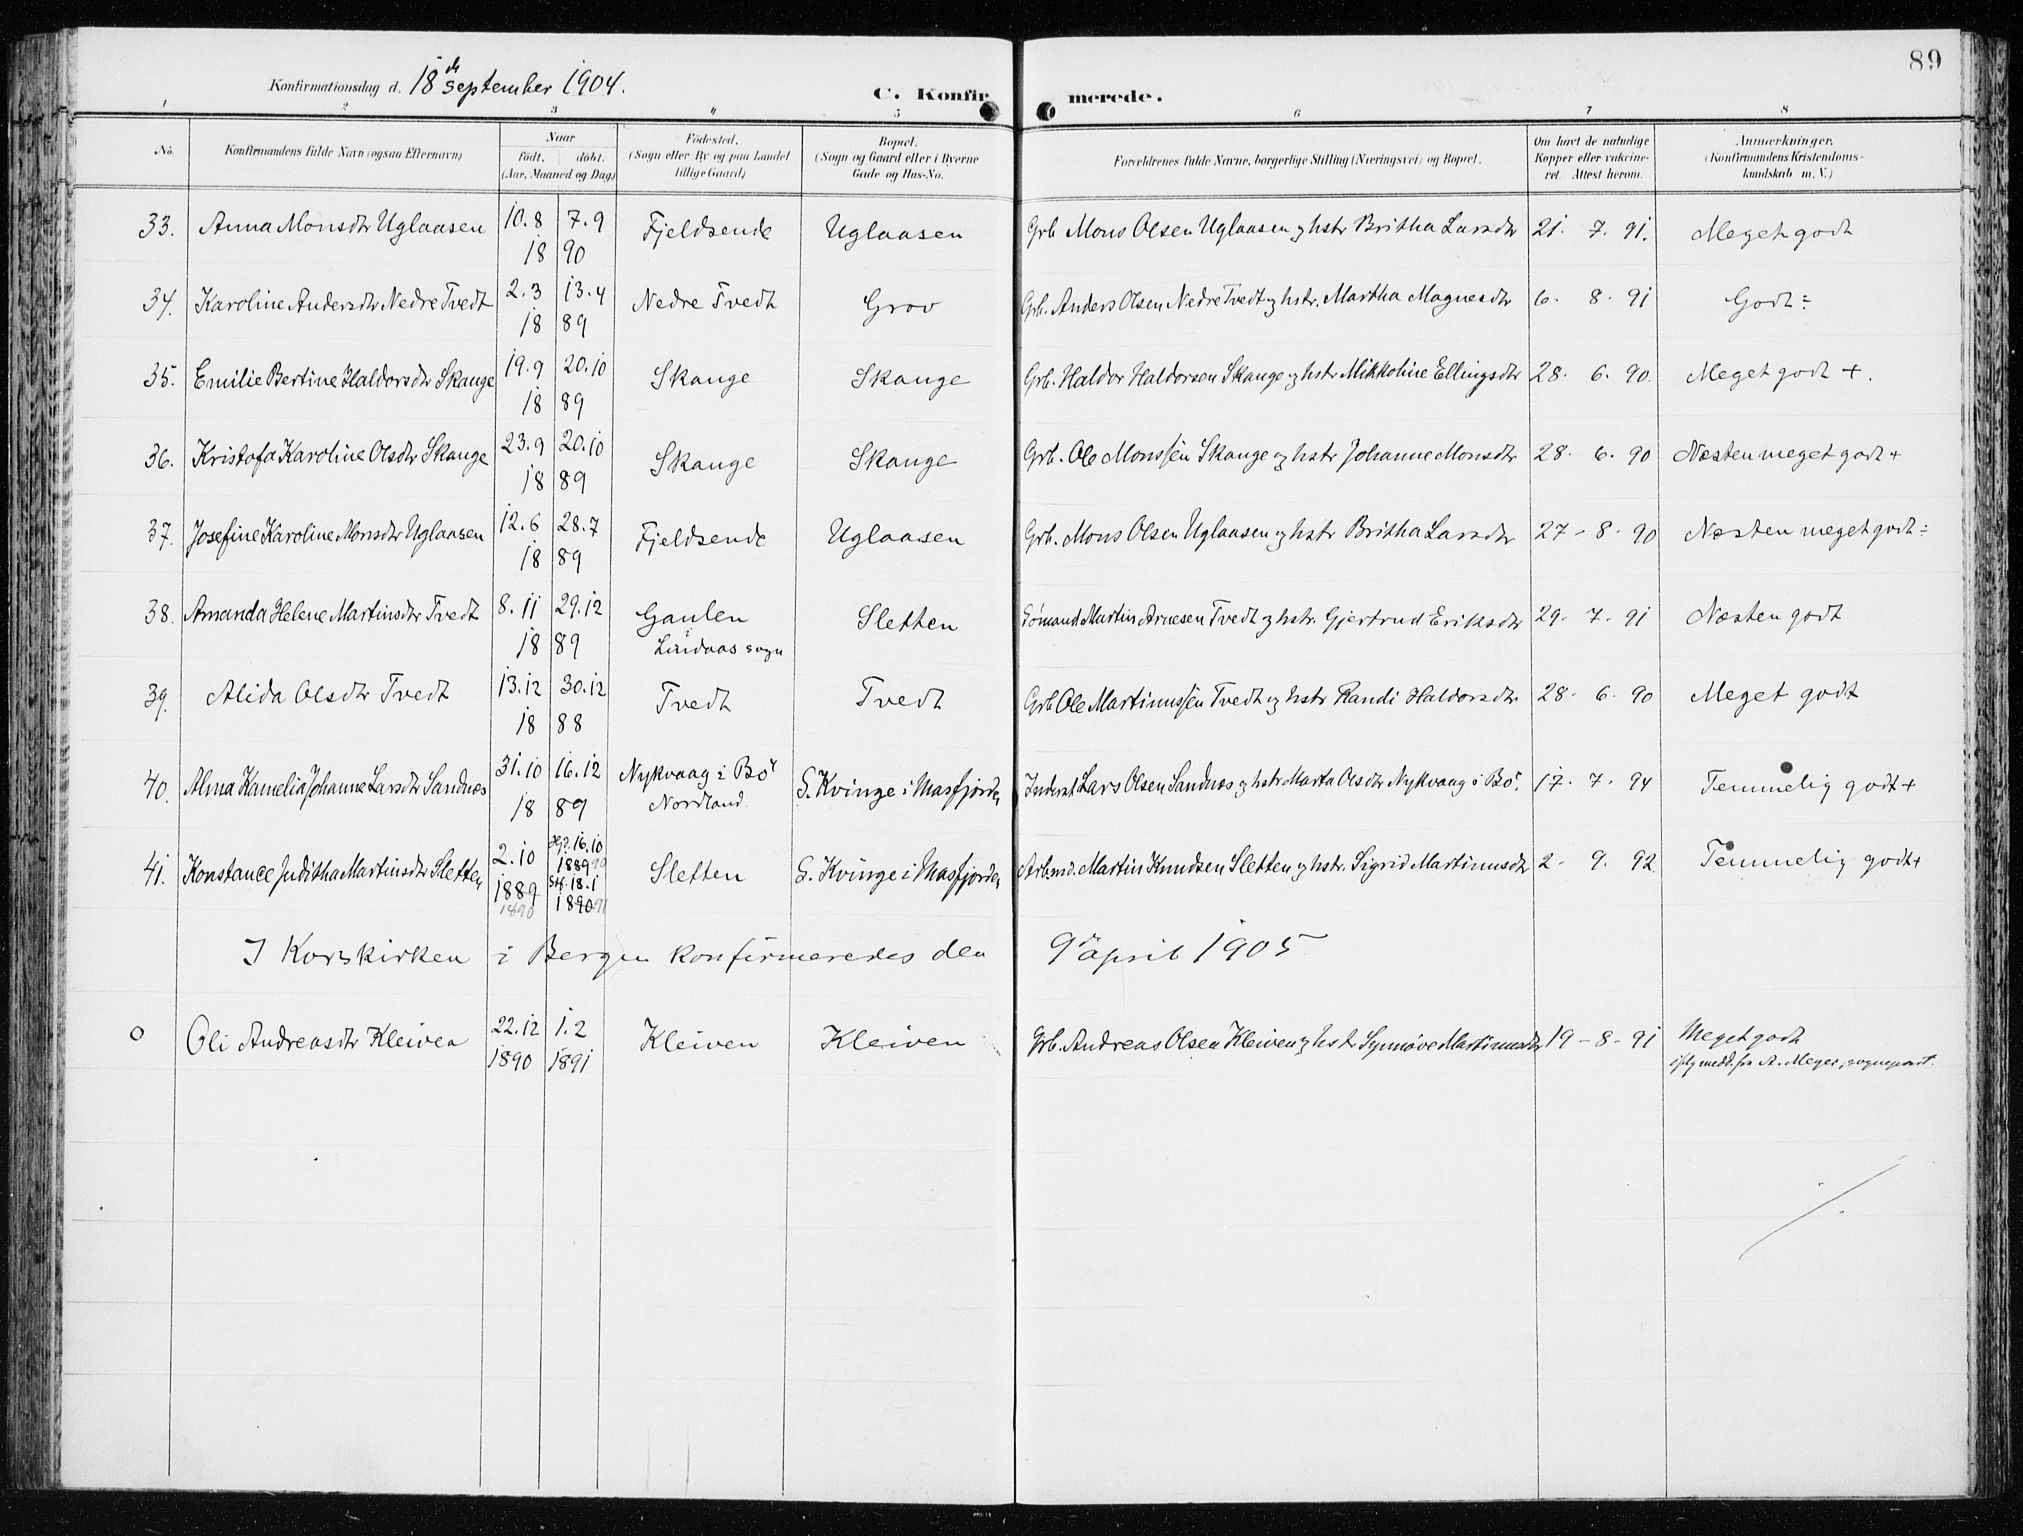 89
Konfirmationsdag d. 18de september 1904.
C. Konfirmerede.
1 2 3 4 5 6 7 8
No. Konfirmandens fulde Navn (ogsaa Efternavn) Naar födt. döbt. (Aar, Maaned og Dag) Födested. (Sogn eller By og paa Landet tillige Gaard) Bopæl. (Sogn og Gaard eller i Byerne Gade og Hus-No. Forældrenes fulde Navne, borgerlige Stilling (Næringsvei) og Bopæl. Om havt de natulige Kopper eller vakcineret Attest herom. Anmærkninger. (Konfirmandens Kristendomskundskab m. V.)
33. Anna Monsdtr Uglaasen 10.8 7.9 Fjeldsende Uglaasen Grb Mons Olsen Uglaasen og hstr Britha Larsdtr 21. 7. 91. Meget godt
18 90
34. Karoline Andersdtr Nedre Tvedt 2.3 13.4 Nedre Tvedt Grov Grb. Anders Olsen Nedre Tvedt og hstr. Martha Magnesdtr 6. 8. 91 Godt ÷
18 89
35. Emilie Bertine Haldorsdtr Skauge 19.9 20.10 Skauge Skauge Grb. Haldor Haldorsen Skauge og hstr Mikkoline Ellingsdtr 28. 6. 90. Meget godt +.
18 89
36. Kristofa Karoline Olsdtr Skauge 23.9 20.10 Skauge Skauge Grb. Ole Monssen Skauge og hstr Johanne Monsdtr 28. 6. 90 Næsten meget godt +
18 89
37. Josefine Karoline Monsdtr Uglaasen 12.6 28.7 Fjeldsende Uglaasen Grb. Mons Olsen Uglaasen og hstr Britha Larsdtr 27 - 8. 90 Næsten meget godt ÷
18 89
38. Amanda Helene Martinsdtr Tvedt 8.11 29.12 Gaulen Sletten Sömand Martin Arnesen Tvedt og hstr. Gjertrud Eriksdtr 29. 7. 91 Næsten godt
18 89 i Lindaas sogn
39. Alida Olsdtr Tvedt 13.12 30.12 Tvedt Tvedt Grb Ole Martinussen Tvedt og hstr Randi Haldorsdtr 28. 6. 90 Meget godt
18 88
40. Alma Kamelia Johanne Larsdtr Sandnes 31.10 16.12 Nykvaag i Bö S. Kvinge i Masfjorden Inderst Lars Olsen Sandnes og hstr Marta Olsdtr Nykvaag i Bö. 17. 7. 94 Temmelig godt +
18 89 Nordland.
41. Konstance Juditha Martinsdtr Sletten 2.10 Hjd. 16.10 Sletten S. Kvinge i Masfjorden Arb.md. Martin Knudsen Sletten og hstr. Sigrid Martinusdtr 2 - 9. 92. Temmelig godt +
1889 1889 90
1890 Stf. 18.1
1890 91
I Korskirken i Bergen konfirmeredes den 9de april 1905
O Oli Andreasdtr Kleiven 22.12 1.2 Kleiven Kleiven Grb. Andreas Olsen Kleiven og hstr Synnöve Martinusdtr 19 - 8 - 91 Meget godt
1890 1891 iflg medd. fra A. Meyer, sogneprest.